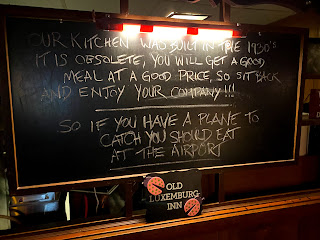 OUR KITCHEN WAS BUILT IN THE 1930'S
IT IS OBSOLETE, YOU WILL GET A GOOD
MEAL AT A GOOD PRICE, SO SIT BACK
AND ENJOY YOUR COMPANY!!!
SO IF YOU HAVE A PLANE TO
CATCH YOU SHOULD EAT
AT THE AIRPORT
OLD
LUXEMBURG
INN